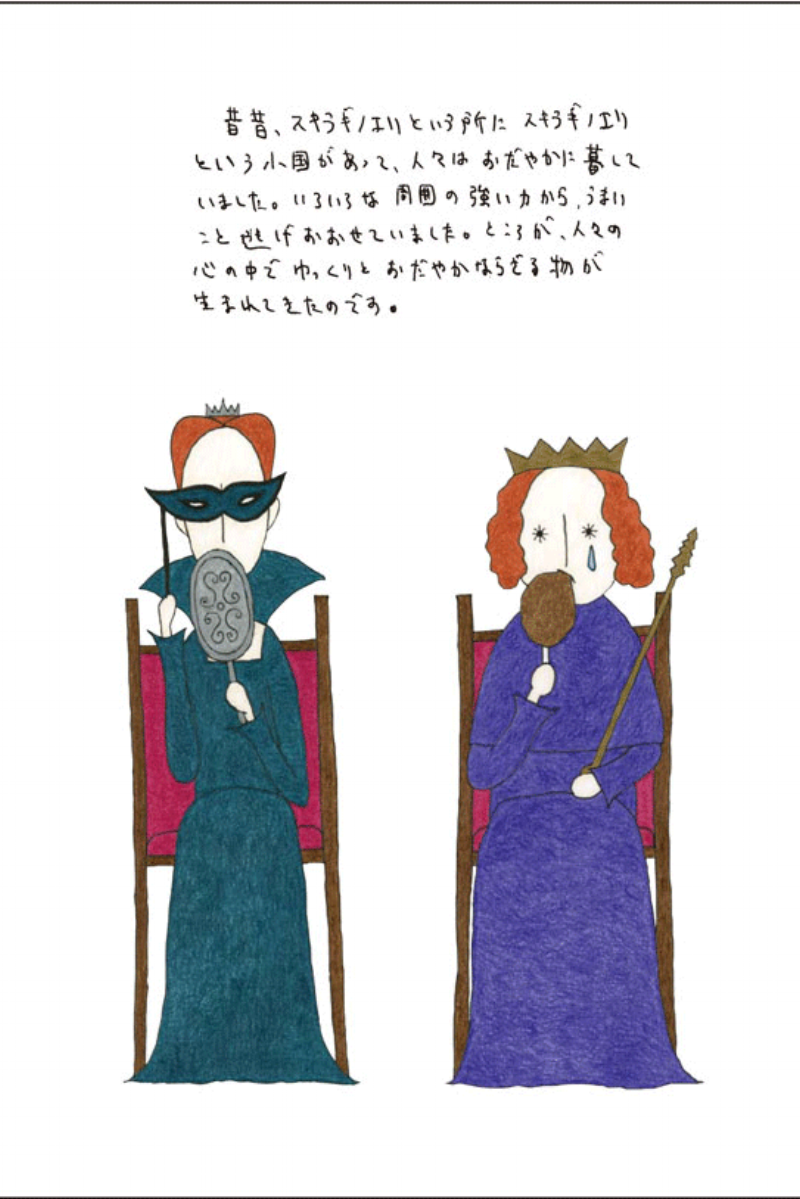 昔昔、スキラギノエリという所に スキラギノエリ
という小国があって、人々は おだやかに暮して
いました。いろいろな 周囲の強い力から、うまい
こと 逃げおおせていました。ところが、人々の
心の中で ゆっくりと おだやかならざる物が
生まれてきたのです。